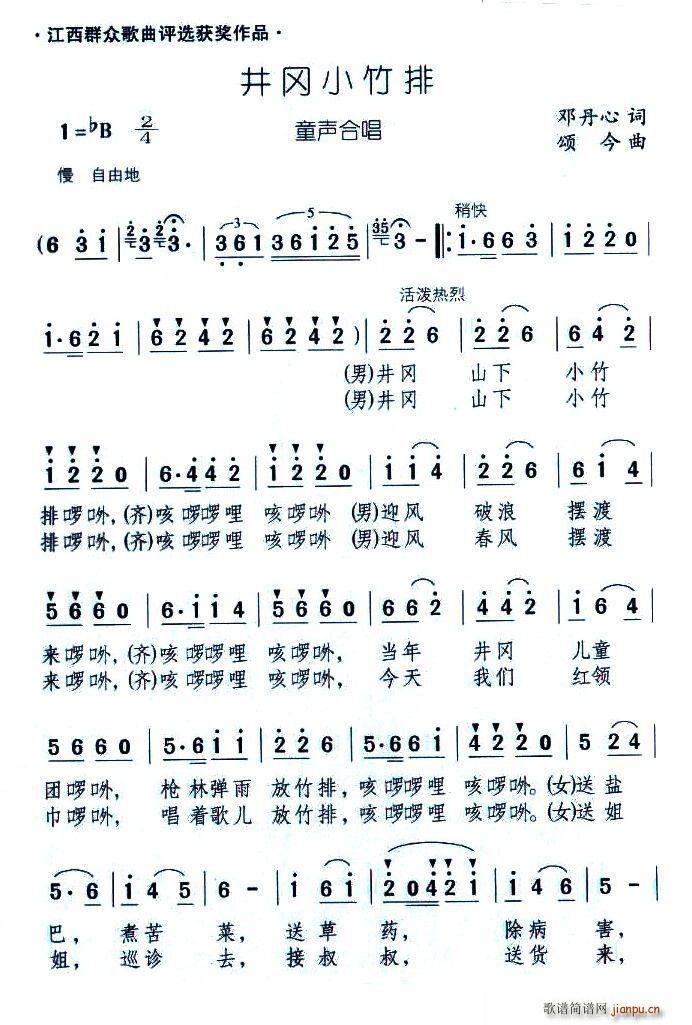 ·江西群众歌曲评选获奖作品·
井冈小竹排
1=♭B 2/4 童声合唱 邓丹心 词
颂今 曲
慢 自由地
稍快
(6 3 i 2 3 2 3· 3 6 1 3 6 i 2 5 35 3 - i·6 6 3 i 2 2 0
活泼热烈
i·6 2 i 6 2 4 2 6 2 4 2 6 2 4 2 ) 2 2 6 2 2 6 6 4 2
(男)井冈 山下 小竹
(男)井冈 山下 小竹
1 2 2 0 6·4 4 2 1 2 2 0 2 2 6 2 2 6 6 i 4
排啰吔,(齐)咳啰啰哩 咳啰吔 (男)迎风 破浪 摆渡
排啰吔,(齐)咳啰啰哩 咳啰吔 (男)迎风 春风 摆渡
5 6 6 0 6·1 1 4 5 6 6 0 6 6 2 4 4 2 i 6 4
来啰吔,(齐)咳啰啰哩 咳啰吔, 当年 井冈 儿童
来啰吔,(齐)咳啰啰哩 咳啰吔, 今天 我们 红领
5 6 6 0 5·6 i i 2 2 6 5·6 6 i 4 2 2 0 5 2 4
团啰吔, 枪林弹雨 放竹排, 咳啰啰哩 咳啰吔。(女)送盐
巾啰吔, 唱着歌儿 放竹排, 咳啰啰哩 咳啰吔。(女)送姐
5·6 i 4 5 6 - i 6 i 2 0 4 2 i i 4 6 5·6
巴, 煮苦 菜, 送草 药, 除病 害,
姐, 巡诊 去, 接叔 叔, 送货 来,
歌谱简谱网
jianpu.cn